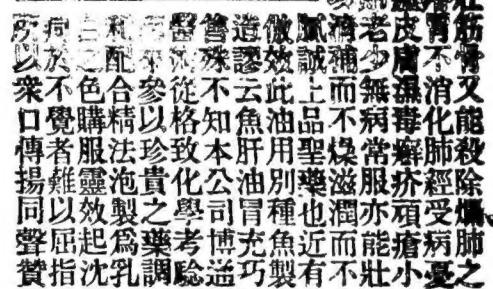 壯筋骨又能殺除爛肺之
胃不消化肺經受病憂
皮膚濕毒癬疥頑瘡小
老少無病常服亦能壯
補而不燥滋潤而不
膩誠上品聖藥也近有
倣效此油用別種魚製
造謬云魚肝油冒充巧
殊不知本公司博
醫從格致化學考驗
參以珍貴之藥調
和配合精法泡製爲乳
白之色購服靈效起沈
疴於不覺者難以屈指
所以衆口傳揚同聲贊